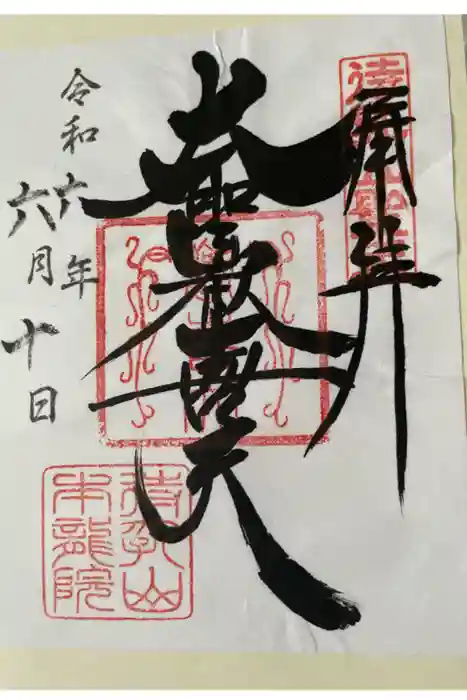 奉拝
大聖歓喜天
令和六年
六月十日
待乳山
本龍院